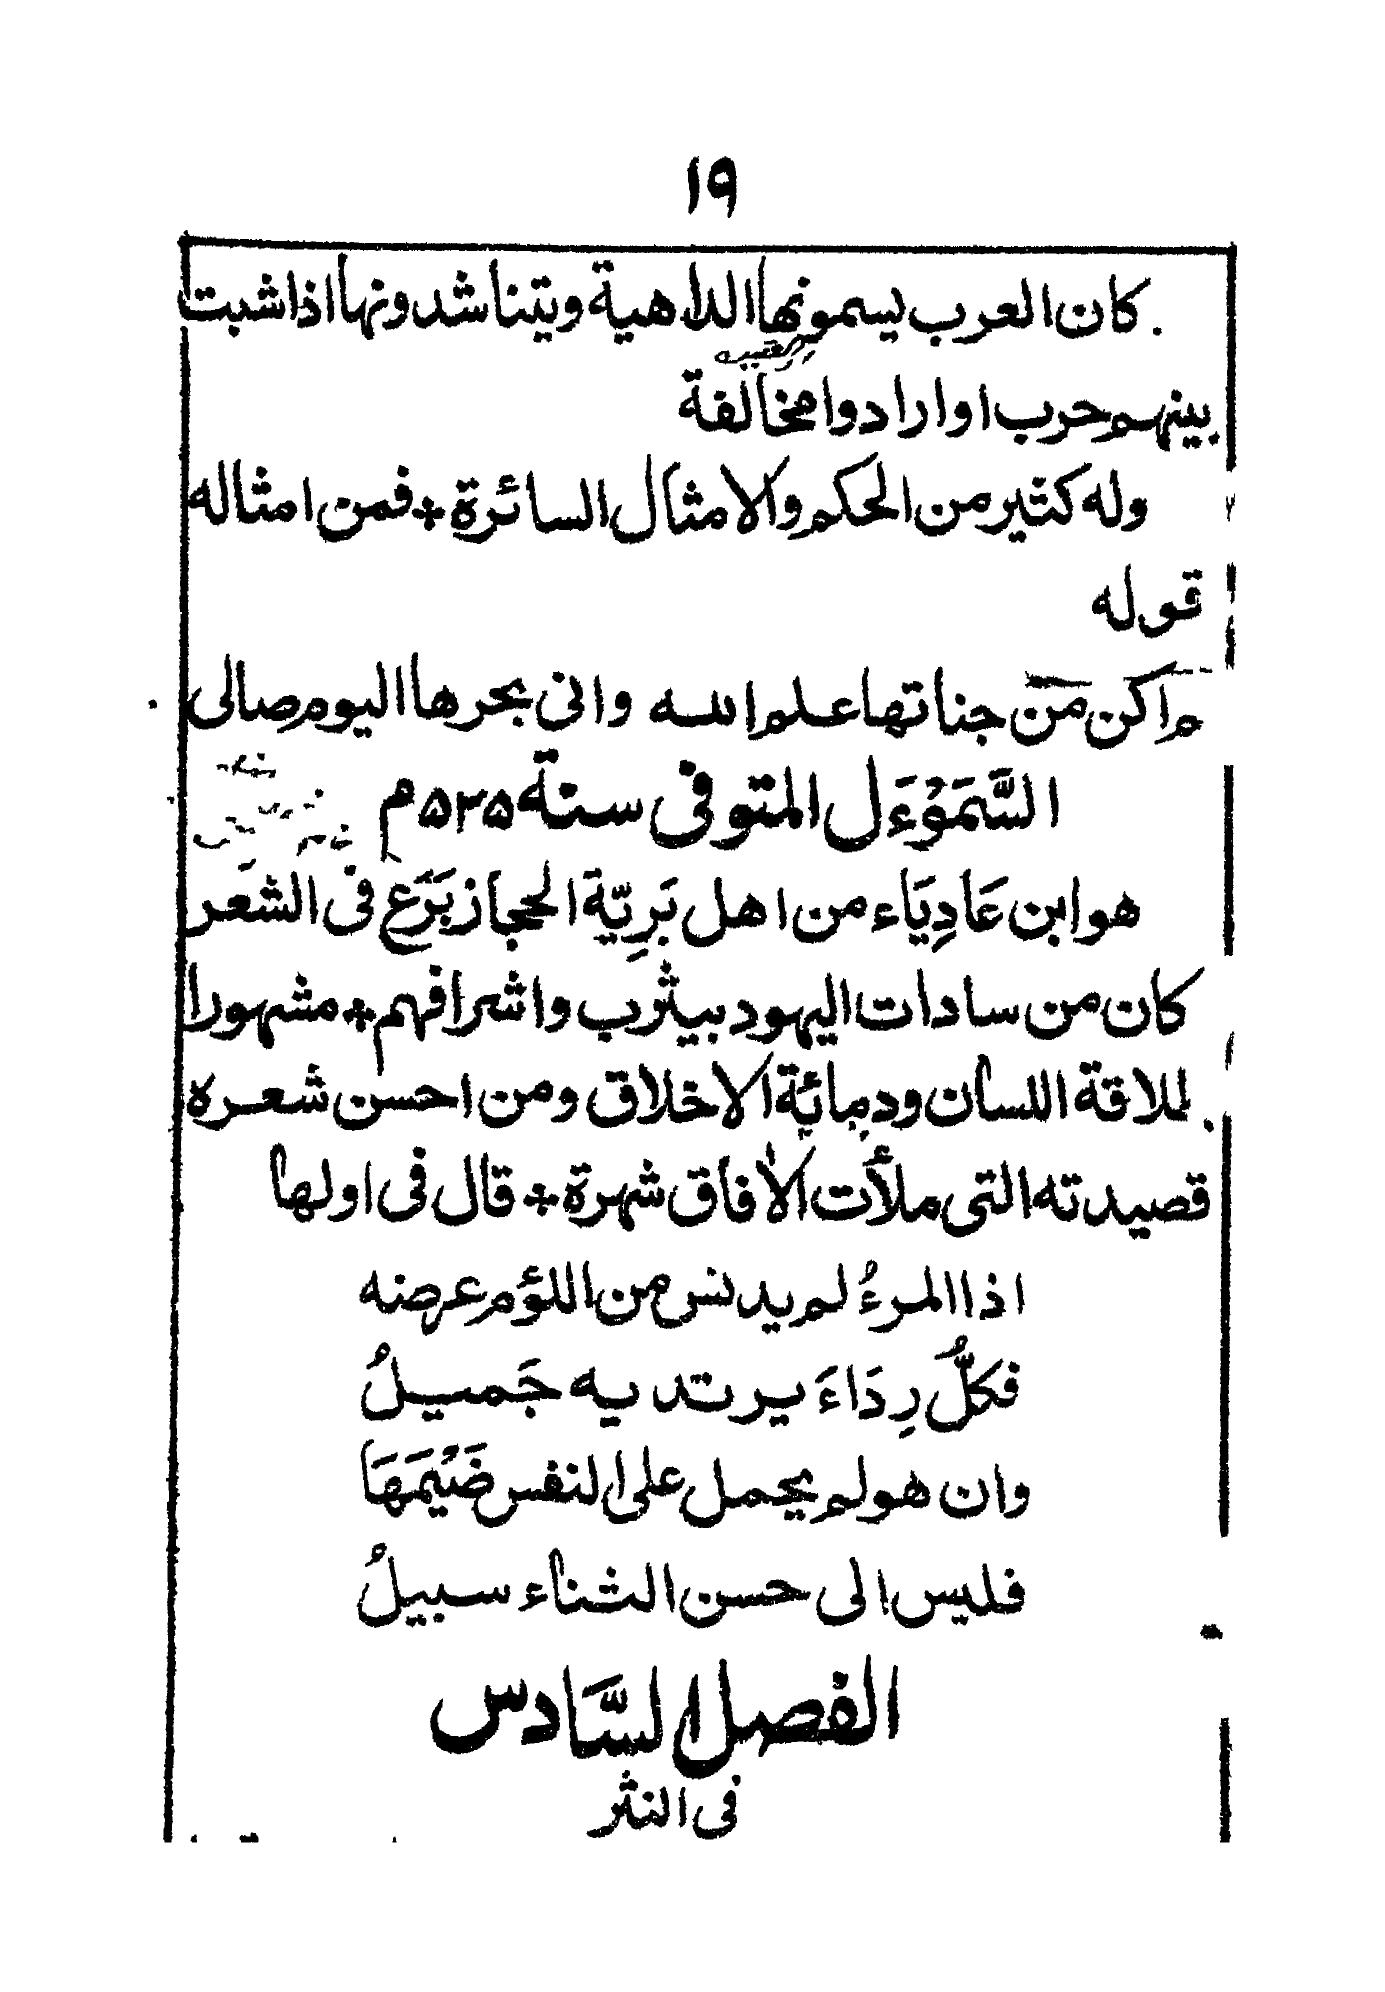 ١٩
كان العرب يسمونها الداهية ويتناشدونها اذا شبت
بينهم حرب او ارادوا مخالفة
وله كثير من الحكم والامثال السائرة * فمن امثاله
قوله
م اكن من جناتها علم الله وانى بحرها اليوم صالى
السَّمَوْءَل المتوفى سنة ۵۳۵ م
هو ابن عَادِيَاء من اهل بَرِيّة الحجاز بَرَع فى الشعر
كان من سادات اليهود بيثرب واشرافهم * مشهورا
لملاقة اللسان ودماثة الاخلاق ومن احسن شعره
قصيدته التى ملأت الأفاق شهرة * قال فى اولها
اذا المرءُ لم يدنس من اللؤم عرضه
فكلُّ رِدَاءَ يرتديه جَميلُ
وان هو لم يحمل على النفس ضَيْمَهَا
فليس الى حسن الثناء سبيلُ
الفصل السَّادس
فى النثر